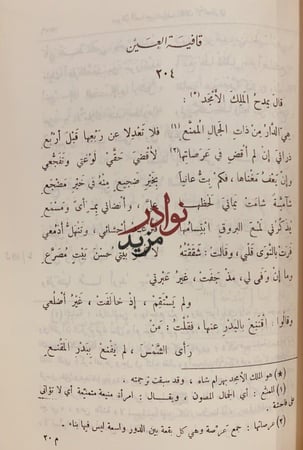 قافية العين
٢٠٤
قال يمدح الملك الأمجد (*):
هي الدار من ذات الجمال الممنع (١) فلا تعدلا عن ربعها قبل أربع
ذراني إن لم أقض في عرصاتها (٢) لأقضي حقي لوعتي وتفجعي
وإن يعف مغناها، فكم بت عانيا بخير ضجيع منه في خير مضجع
شآمية شامت يماني لحظها وأضالعي بمرأى ومسمع
يذكرني لمع البروق ابتسامها وتنهل أدمعي
قرنت بالنوى قلبي، وقالت: شققته بيتي حسن بيت مصرع
وما إن وفى لي، مذ جفت، غير عبرتي
ولم يستقم، إذ خالفت، غير أضلعي
وقالوا: اقتنع بالبدر عنها، فقلت: من
رأى الشمس، لم يقنع ببدر المقنع
(*) هو الملك الأمجد بهرام شاه، وقد سبقت ترجمته.
(١) الممنع: أي الجمال المصون، ويقال: امرأة منيعة متمنعة أي لا تؤاتى
على فاحشة.
(٢) عرصاتها: جمع عرصة وهي كل بقعة بين الدور واسعة ليس فيها بناء.
م ٢٠
نوادر
مزيد